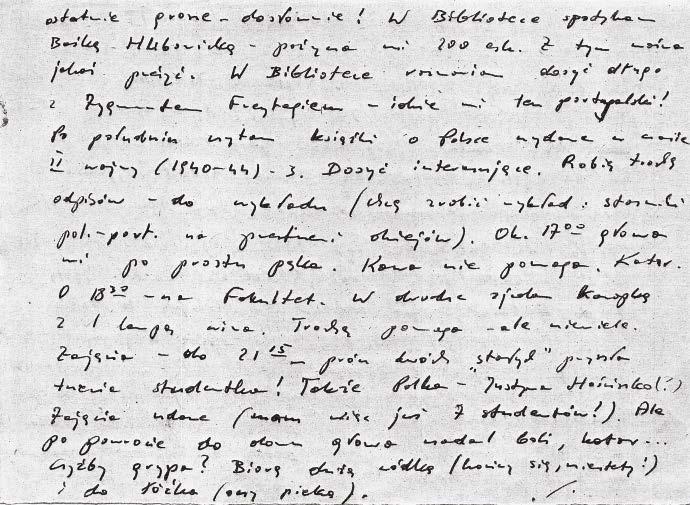 ostatnie grosze - dosłownie! W Bibliotece spotykam
Baśkę Hlibowicką - pożycza mi 200 esk. Z tym można
jakoś przeżyć. W Bibliotece rozmawiam dosyć długo
z Zygmuntem Freytagiem - idzie mi ten portugalski!
Po południu czytam książki o Polsce wydane w czasie
II wojny (1940-44) - 3. Dosyć interesujące. Robię trochę
odpisów - do wykładu (chcę zrobić wykład: stosunki
pol.-port. na przestrzeni dziejów). Ok. 17⁰⁰ głowa
mi po prostu pęka. Kawa nie pomaga. Katar.
O 18³⁰ - na Fakultet. W drodze zjadam kanapkę
z 1 lampą wina. Trochę pomaga - ale niewiele.
Zajęcia - do 21¹⁵ prócz dwóch "starych" przyszła
trzecia studentka! Także Polka - Justyna (?)
Zajęcia udane (mam więc już 7 studentów!). Ale
po powrocie do domu głowa nadal boli, katar...
czyżby grypa? Biorę dużą wódkę (kończy się, niestety!)
i do łóżka (oczy pieką).